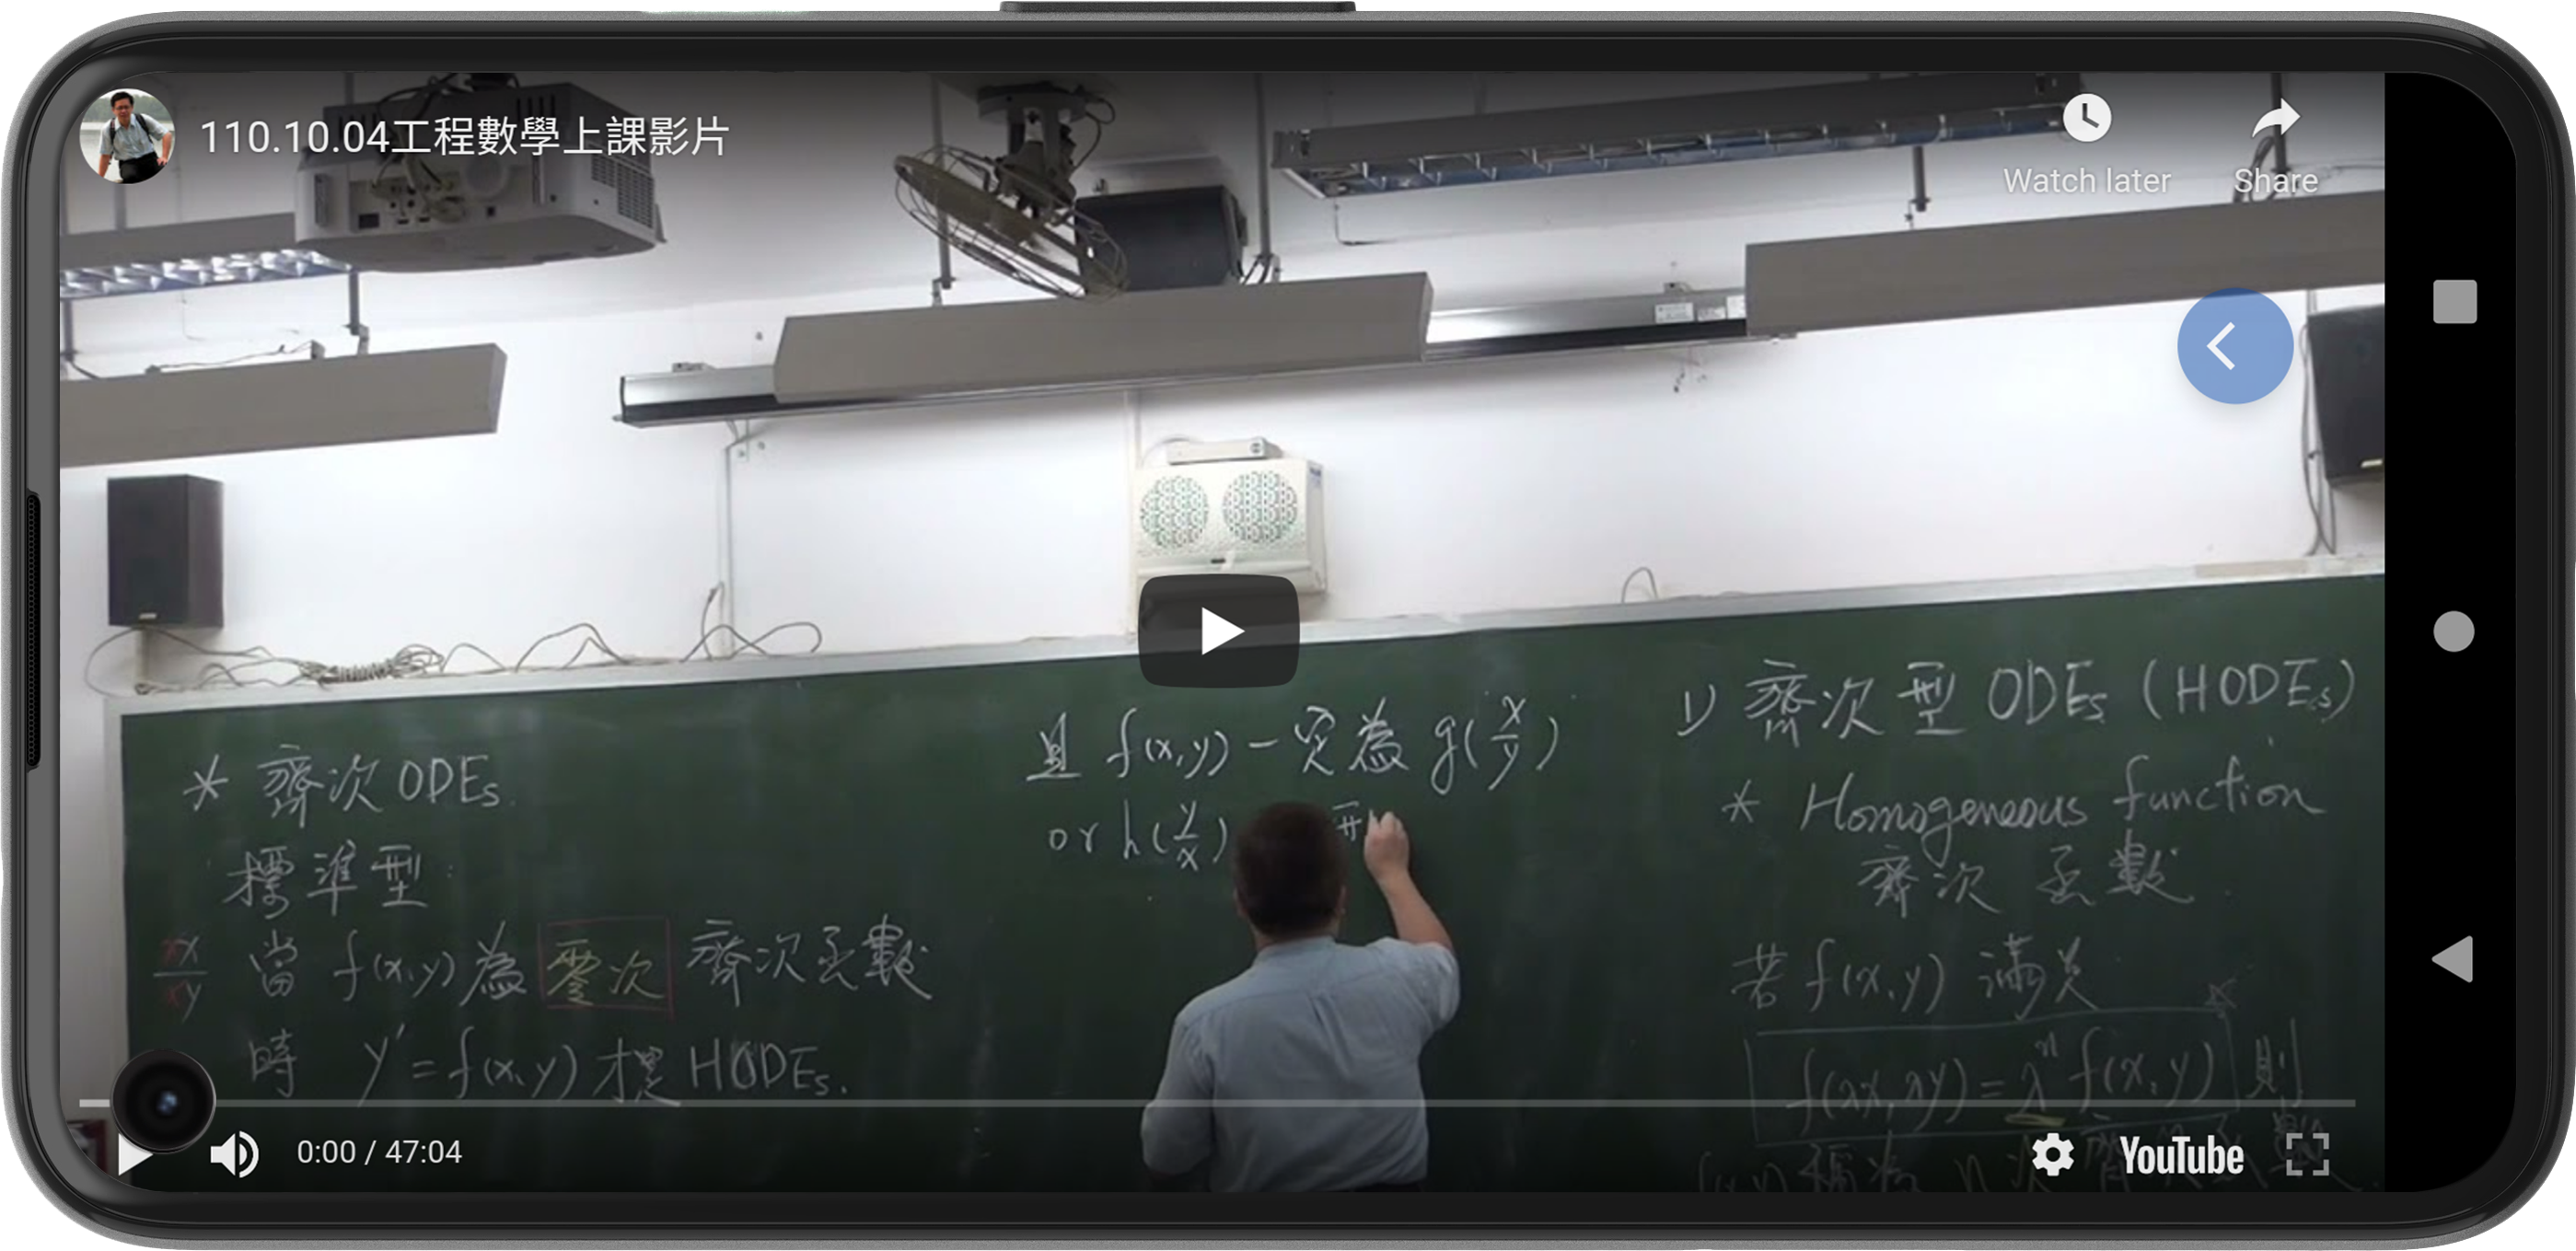 110.10.04工程數學上課影片
Watch later
Share
* 齊次 ODEs.
標準型:
當 f(x,y)為 零次 齊次函數
x/y
時 y'=f(x,y) 才是 HODEs.
且 f(x,y) 一定為 g(x/y)
or h(y/x) 型
1) 齊次型 ODEs (HODEs)
* Homogeneous function
齊次 函數
若 f(x,y) 滿足
f(λx,λy)=λⁿ f(x,y) 則
f(x,y) 稱為 n 次 齊次函數
0:00 / 47:04
YouTube